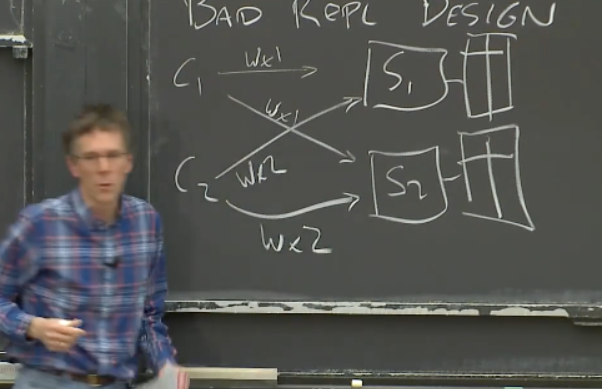 BAD REPL DESIGN
C1 Wx1 S1
Wx1
C2 Wx2 S2
Wx2